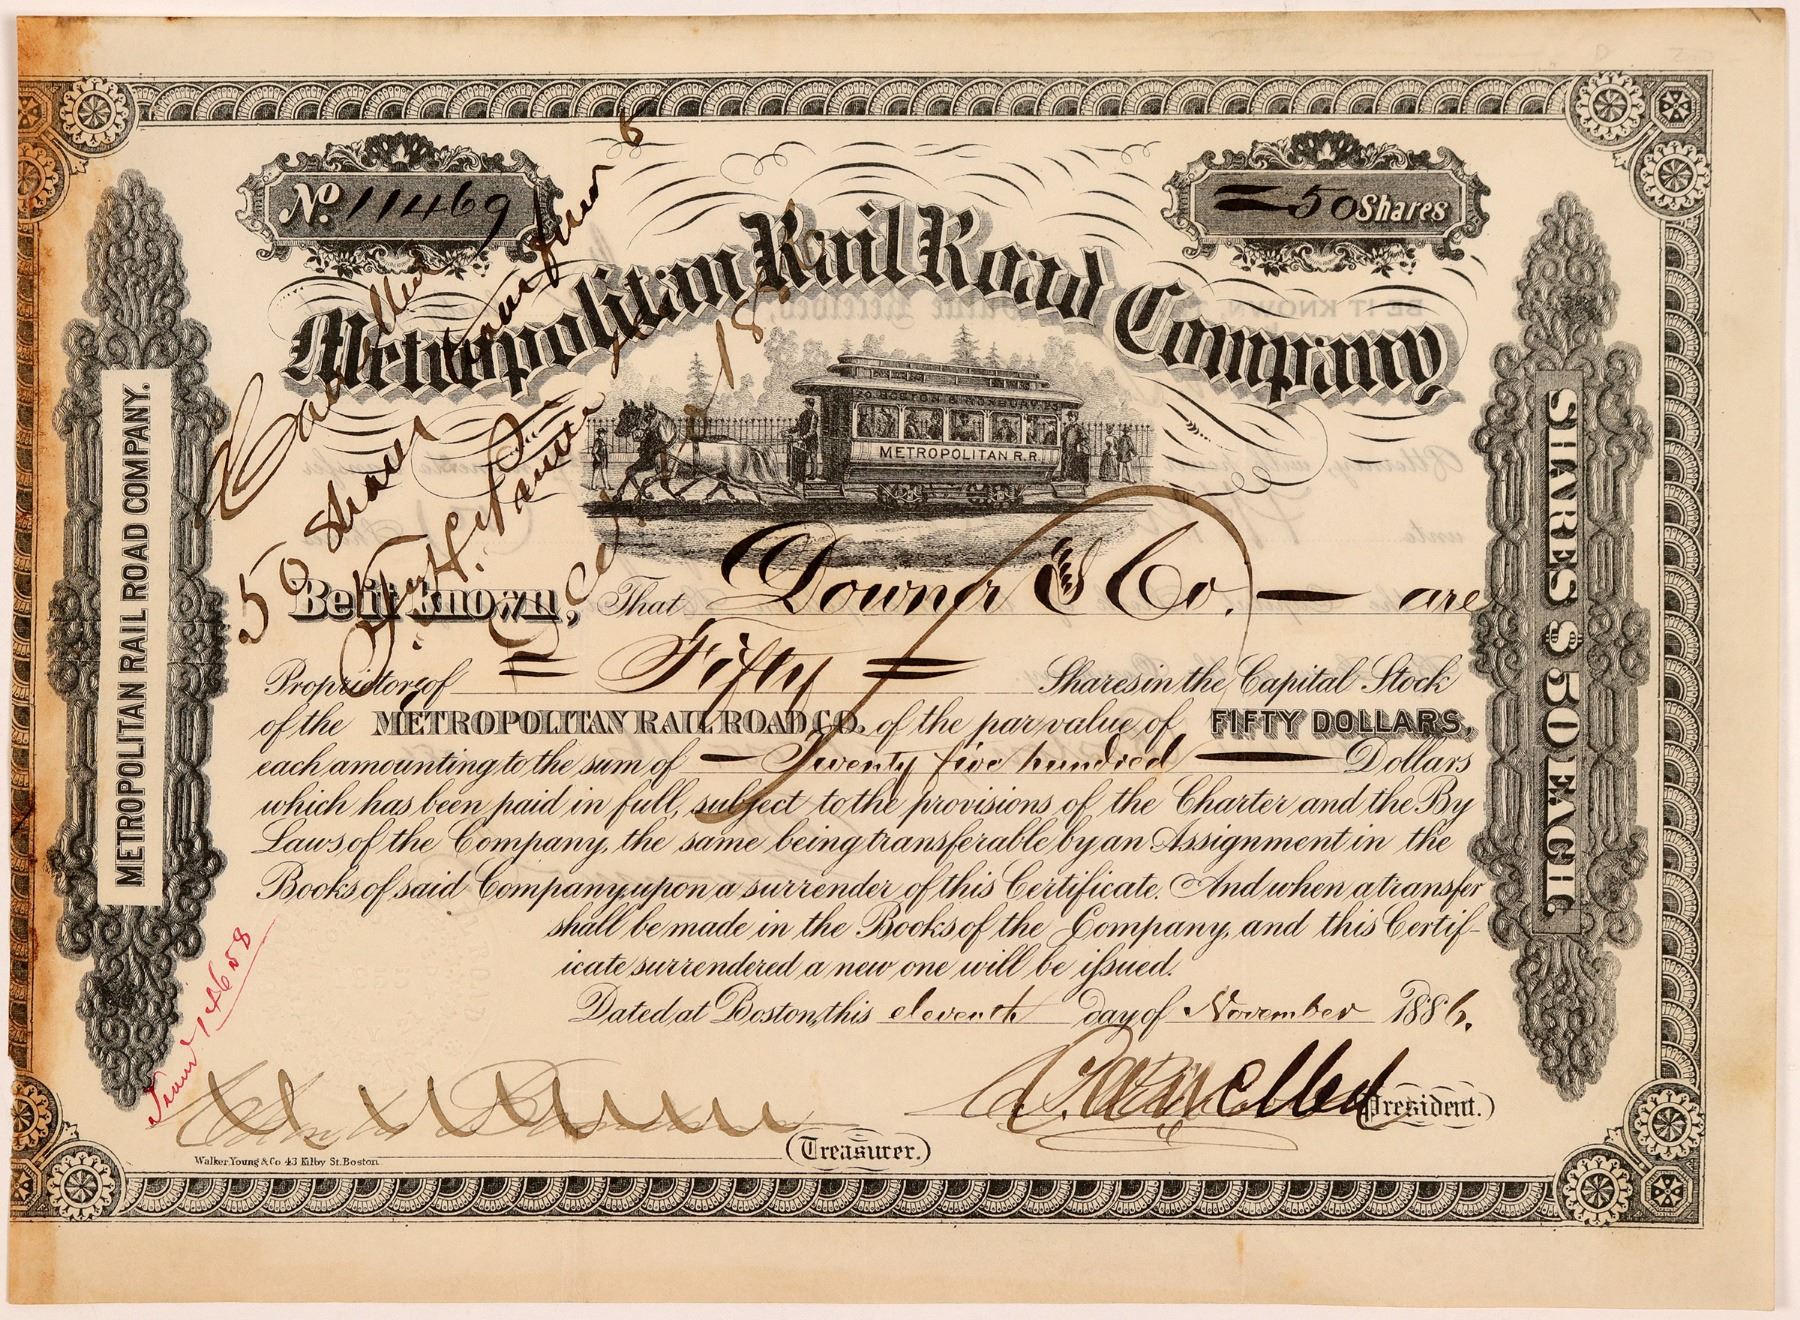 No. 11469
50 Shares
Metropolitan Rail Road Company
TO BOSTON & ROXBURY
METROPOLITAN R.R.
METROPOLITAN RAIL ROAD COMPANY.
SHARES $50 EACH
Cancelled
50 Shares
Be it known, That Downer & Co. are
Proprietors of = Fifty = Shares in the Capital Stock
of the METROPOLITAN RAIL ROAD CO. of the par value of FIFTY DOLLARS,
each amounting to the sum of — Twenty five hundred — Dollars
which has been paid in full, subject to the provisions of the Charter and the By
Laws of the Company, the same being transferable by an Assignment in the
Books of said Company, upon a surrender of this Certificate. And when a transfer
shall be made in the Books of the Company, and this Certif-
icate surrendered a new one will be issued.
Dated at Boston, this eleventh day of November 1886.
14658
President.)
(Treasurer.)
Walker Young & Co 43 Kilby St. Boston